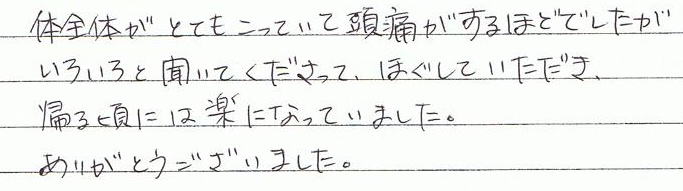 体全体がとてもこっていて頭痛がするほどでしたが
いろいろと聞いてくださって、ほぐしていただき、
帰る頃には楽になっていました。
ありがとうございました。